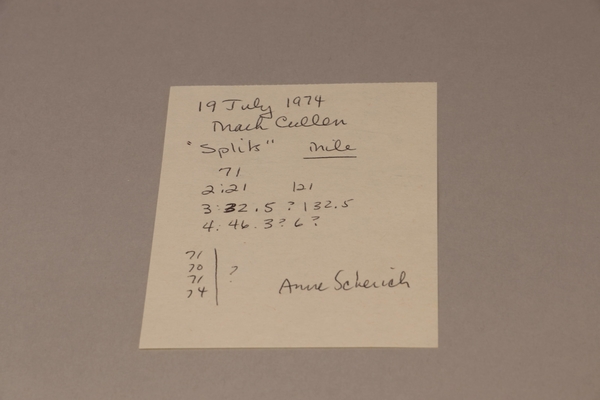 19 July 1974
Mack Cullen
"Splits" mile
71
2:21 121
3:32.5 ? 132.5
4:46.3? 6?
71
70 ?
71
74
Anne Scherich